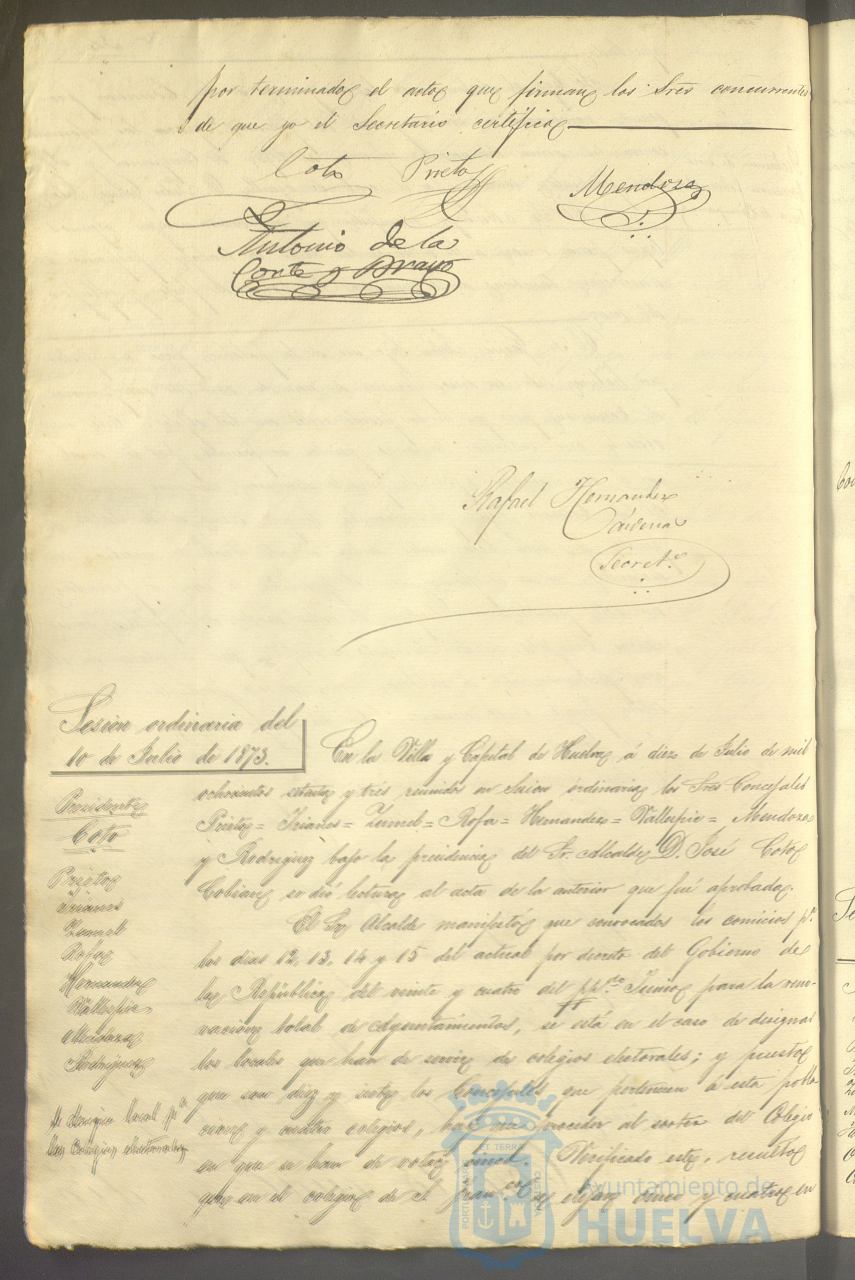 por terminado el acto que firman los Sres concurrentes
de que yo el Secretario certifico
Coto Prieto Mendoza
Antonio de la
Corte y Bravo
Rafael Hernandez
Cárdenas
Secret.º
Sesion ordinaria del
10 de Julio de 1873.
Presidente
Coto
Prieto
Trianes
Zunel
Rofa
Hernandez
Vallespin
Mendoza
Rodriguez
Se designan locales p.ª
los Colegios electorales
En la Villa y Capital de Huelva á diez de Julio de mil
ochocientos setenta y trés reunidos en Sesion órdinaria los Sres Concejales
Prieto = Trianes = Zunel = Rofa = Hernandez = Vallespin = Mendoza
y Rodriguez bajo la presidencia del Sr. Alcalde D. José Coto
Cobian se dió lectura al acta de la anterior que fué aprobada.
El Sr. Alcalde manifestó que convocados los comicios p.ª
los dias 12, 13, 14 y 15 del actual por decreto del Gobierno de
la República del veinte y cuatro del pp.do Junio para la reno-
vacion total de Ayuntamientos, se está en el caso de designar
los locales que han de servir de colegios electorales; y puesto
que son diez y siete los Concejales que pertenecen á esta pobla
cion y cuatro colegios, hay que proceder al sorteo del Colegio
en que se han de votar cinco. Verificado este, resultó
que en el colegio de S. Fran.co se elijan cinco y cuatro en
Ayuntamiento de
HUELVA